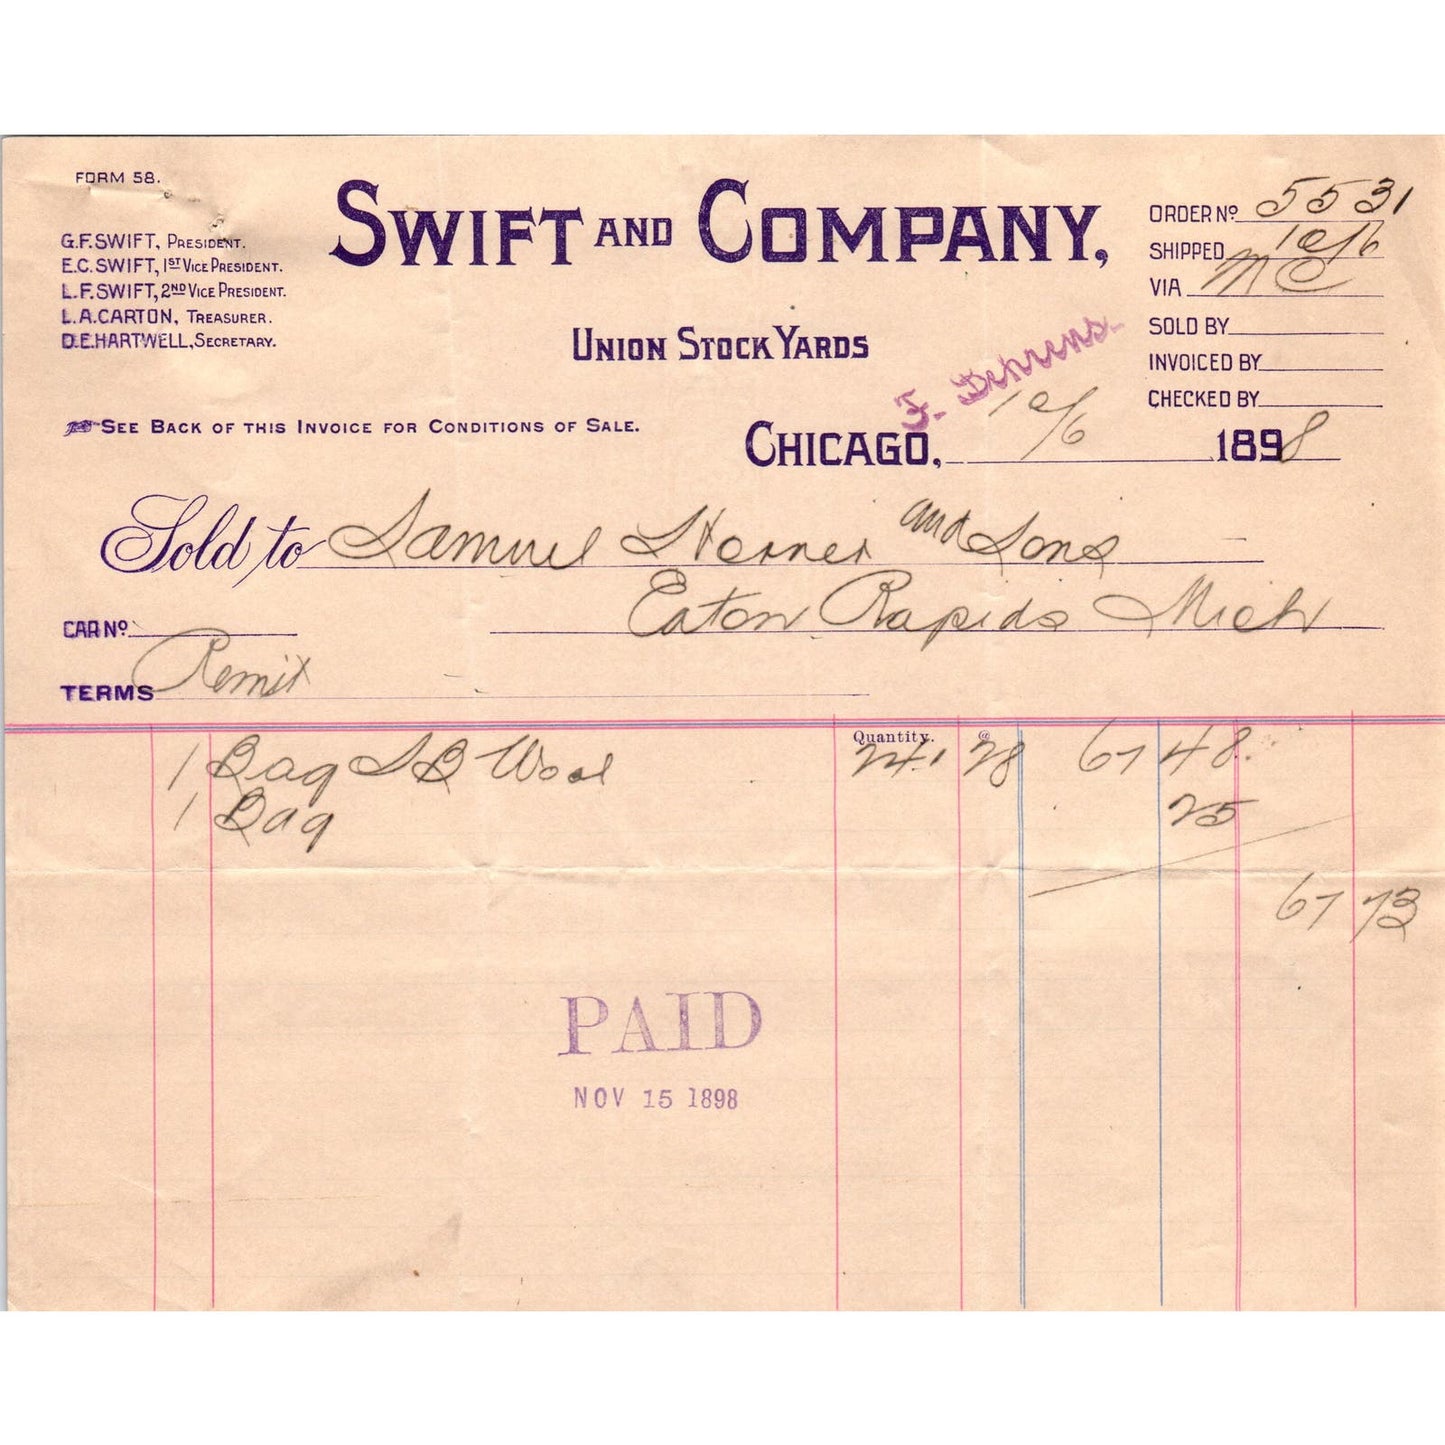 FORM 58.
G.F. SWIFT, PRESIDENT.
E.C. SWIFT, 1ST VICE PRESIDENT.
L.F. SWIFT, 2ND VICE PRESIDENT.
L.A. CARTON, TREASURER.
D.E. HARTWELL, SECRETARY.
SWIFT AND COMPANY,
UNION STOCK YARDS
ORDER No. 5531
SHIPPED 10/6
VIA MC
SOLD BY
INVOICED BY
CHECKED BY
F. Behrens.
SEE BACK OF THIS INVOICE FOR CONDITIONS OF SALE.
CHICAGO, 10/6 1898
Sold to Samuel Horner and Sons
Eaton Rapids Mich
CAR No.
TERMS Remit
Quantity. @
1 Bag SB Wool 241 28 67 48.
1 Bag 25
67 73
PAID
NOV 15 1898